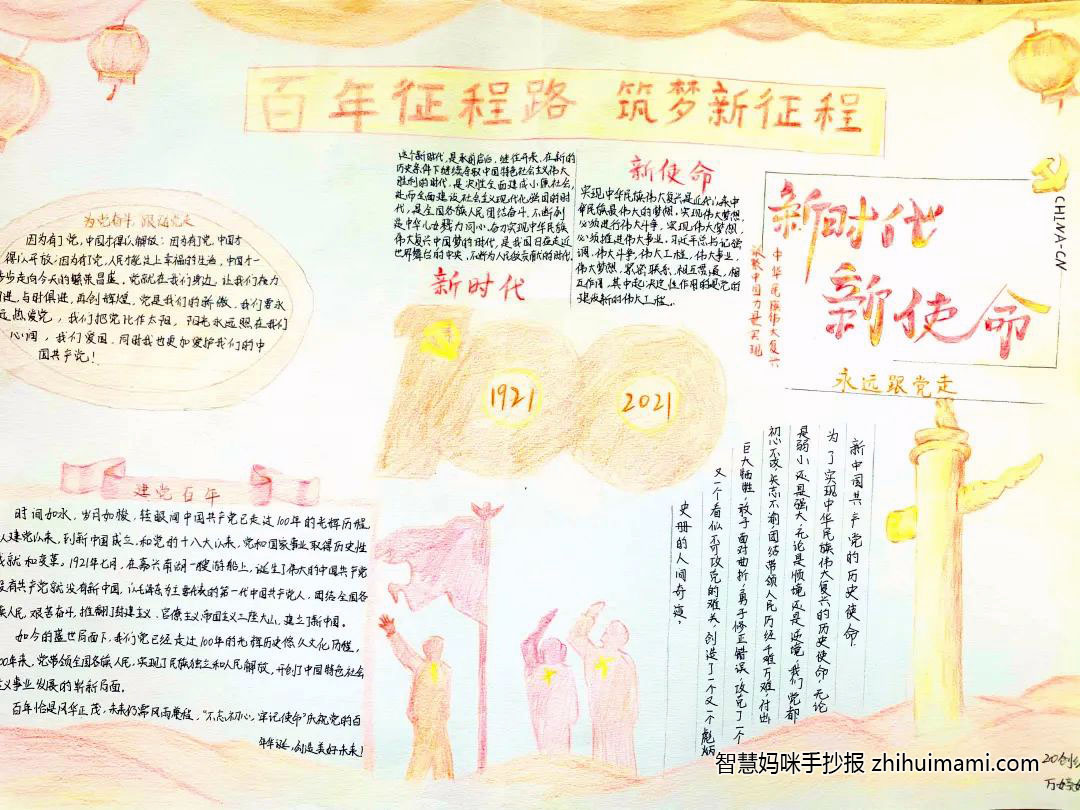 百年征程路 筑梦新征程
为党奋斗,跟随党走
因为有了党,中国才得以解放;因为有了党,中国才
得以开放;因为有了党,人民才能过上幸福的生活,中国才一
步步走向今天的繁荣昌盛。党就在我们身边,让我们奋力
前进,与时俱进,再创辉煌。党是我们的骄傲,我们要永
远热爱党,我们把党比作太阳,阳光永远照在我们
心间,我们爱国,同时我也更加爱护我们的中
国共产党!
这个新时代,是承前启后,继往开来,在新的
历史条件下继续夺取中国特色社会主义伟大
胜利的时代,是决胜全面建成小康社会,
进而全面建设社会主义现代化强国的时
代,是全国各族人民团结奋斗,不断创
是中华儿女戮力同心,奋力实现中华民族
伟大复兴中国梦的时代,是我国日益走近
世界舞台的中央,不断为人民做贡献的时代。
新时代
新使命
实现中华民族伟大复兴是近代以来中
华民族最伟大的梦想,实现伟大梦想,
必须进行伟大斗争,实现伟大梦想,
必须推进伟大事业,习近平总书记强
调,伟大斗争,伟大工程,伟大事业,
伟大梦想,紧密联系,相互贯通,相
互作用,其中起决定性作用的是党的
建设新的伟大工程。
CHINA-CN
新时代
新使命
中华民族伟大复兴
凝聚中国力量实现
永远跟党走
1921
2021
建党百年
时间如水,岁月如梭,转眼间中国共产党已走过100年的光辉历程
从建党以来,到新中国成立,和党的十八大以来,党和国家事业取得历史性
成就和变革。1921年七月,在嘉兴南湖一艘的船上,诞生了伟大的中国共产党
没有共产党就没有新中国,以毛泽东为主要代表的第一代中国共产党人,团结全国各
族人民,艰苦奋斗,推翻了封建主义、官僚主义、帝国主义三座大山,建立了新中国。
如今的盛世局面下,我们党已经走过100年的光辉历史悠久文化历程,
100年来,党带领全国各族人民,实现了民族独立和人民解放,开创了中国特色社会
主义事业发展的崭新局面。
百年恰是风华正茂,未来仍需风雨兼程,“不忘初心,牢记使命”庆祝党的百
年华诞,创造美好未来!
新中国共产党的历史使命.
为了实现中华民族伟大复兴的历史使命,无论
是弱小还是强大,无论是顺境还是逆境,我们党都
初心不改,矢志不渝,团结带领人民历经千难万难,付出
巨大牺牲,敢于面对曲折,勇于修正错误,攻克了一个
又一个看似不可攻克的难关,创造了一个又一个彪炳
史册的人间奇迹,
智慧妈咪手抄报 zhihuimami.com